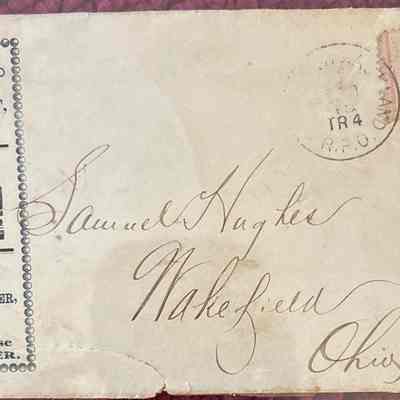 TR 4
R.P.O.
Samuel Hughes
Wakefield
Ohio
ER,
se
ER.